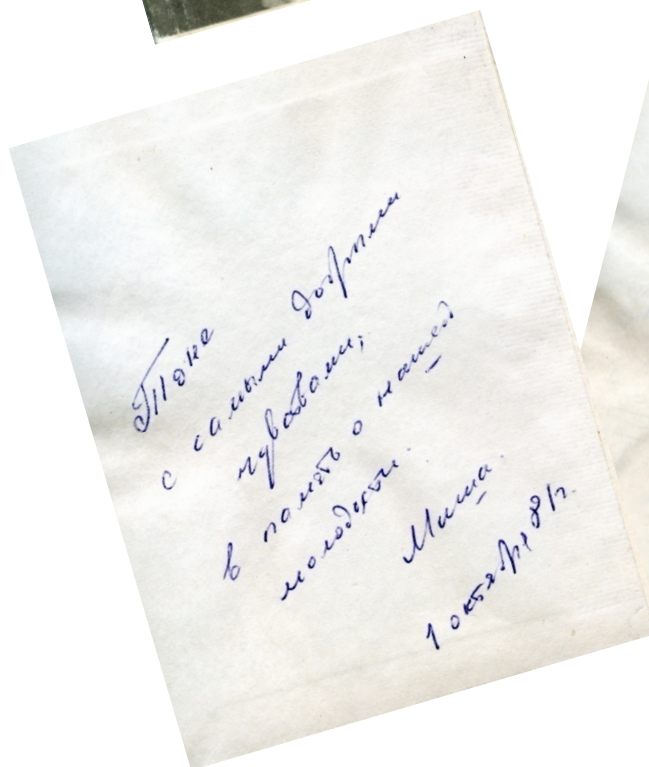 Тоне
с самыми добрыми
чувствами,
в память о нашей
молодости.
Миша.
1 октября 81г.